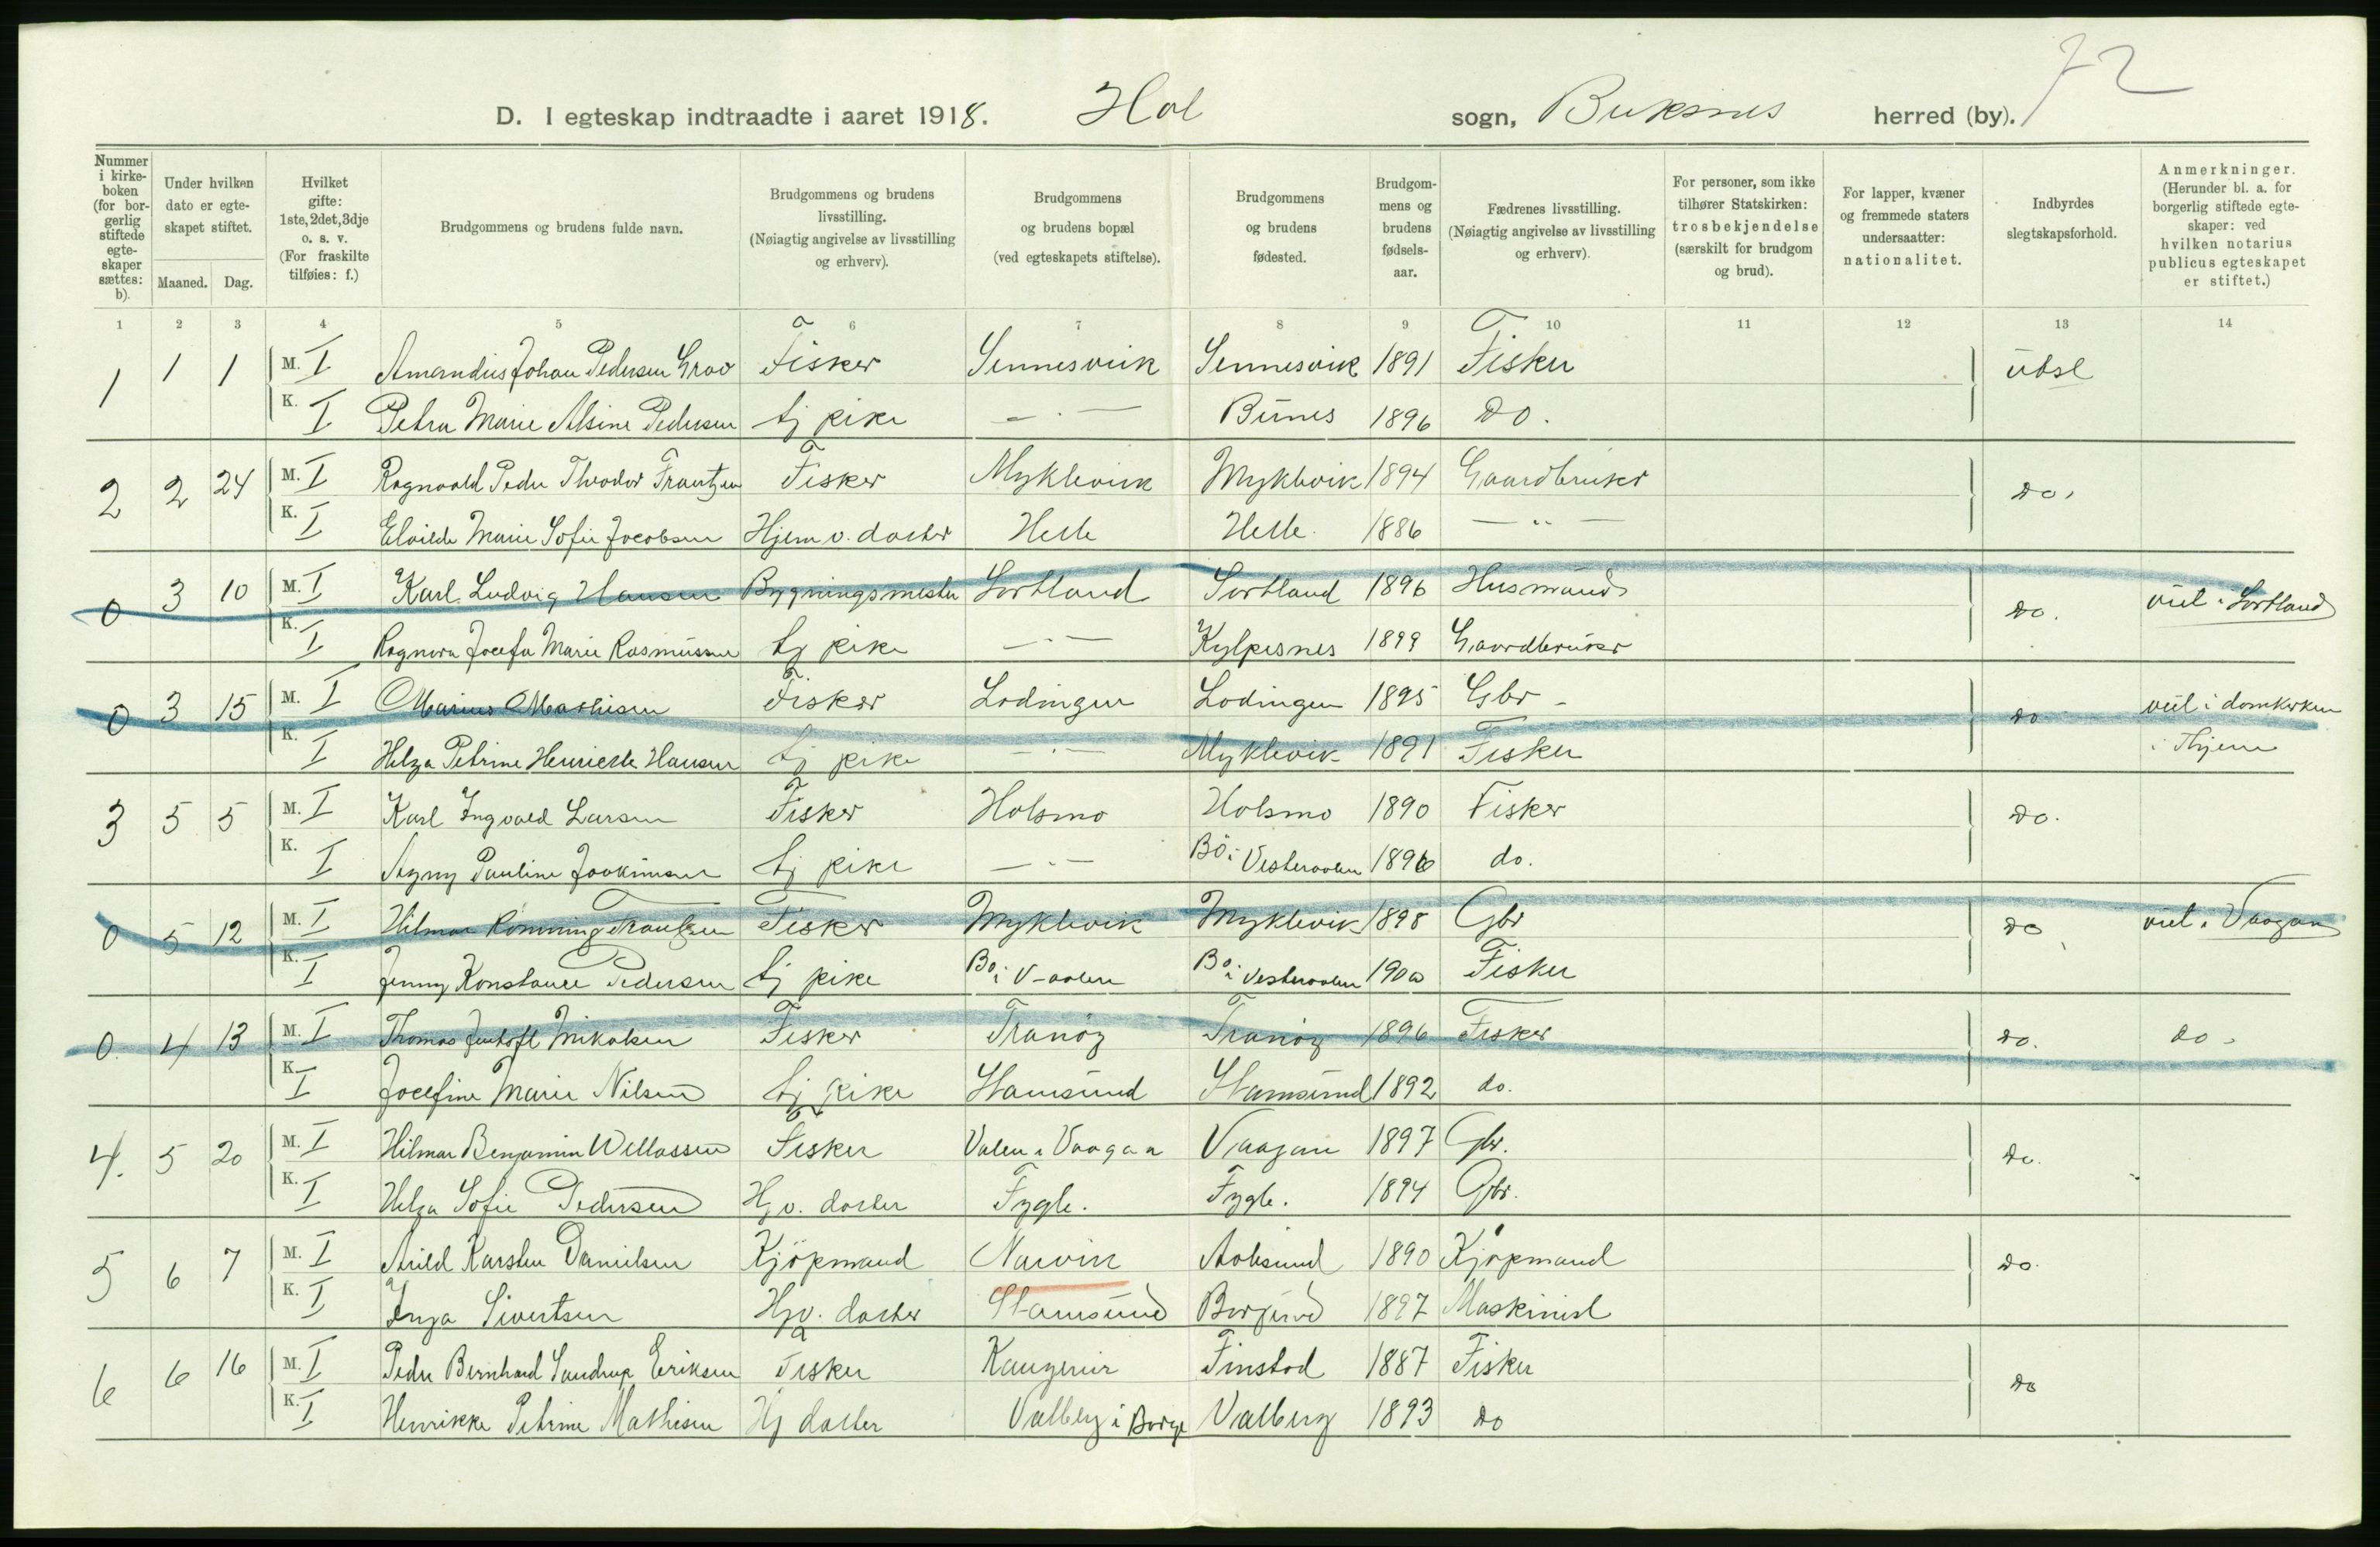 72
D. I egteskap indtraadte i aaret 1918. Hol sogn, Buksnes herred (by).
Nummer i kirkeboken (for borgerlig stiftede egteskaper sættes: b).
Under hvilken dato er egteskapet stiftet.
Maaned. Dag.
Hvilket gifte: 1ste, 2det, 3dje o. s. v. (For fraskilte tilføies: f.)
Brudgommens og brudens fulde navn.
Brudgommens og brudens livsstilling. (Nøiagtig angivelse av livsstilling og erhverv).
Brudgommens og brudens bopæl (ved egteskapets stiftelse).
Brudgommens og brudens fødested.
Brudgommens og brudens fødselsaar.
Fædrenes livsstilling. (Nøiagtig angivelse av livsstilling og erhverv).
For personer, som ikke tilhører Statskirken: trosbekjendelse (særskilt for brudgom og brud).
For lapper, kvæner og fremmede staters undersaatter: nationalitet.
Indbyrdes slegtskapsforhold.
Anmerkninger. (Herunder bl. a. for borgerlig stiftede egteskaper: ved hvilken notarius publicus egteskapet er stiftet.)
1 2 3 4 5 6 7 8 9 10 11 12 13 14
1 1 1 M. I Amandus Johan Pedersen Grav Fisker Sennesvik Sennesvik 1891 Fisker ubsl
K. I Petra Marie Alsine Pedersen tj pike — " — Bünes 1896 Do.
2 2 24 M. I Ragnvald Peder Theodor Frantzen Fisker Myklevik Myklevik 1894 Gaardbruker Do.
K. I Elvilde Marie Sofie Jacobsen Hjem v. datter Helle Helle 1886 — " —
0 3 10 M. I Karl Ludvig Hansen Bygningsmester Sortland Sortland 1896 Husmand Do. viet i Sortland
K. I Ragnvra Josefa Marie Rasmussen tj pike — " — Kylpesnes 1899 Gaardbruker
0 3 15 M. I Marius Mathisen Fisker Lodingen Lodingen 1895 Gbr - do viet i domkirken
K. I Helga Petrine Henriette Hansen tj pike — " — Myklevik 1891 Fisker i
3 5 5 M. I Karl Ingvald Larsen Fisker Holsmo Holsmo 1890 Fisker Do.
K. I Agny Pauline Joakimsen tj pike — " — Bö i Vesteraalen 1896 do.
0 5 12 M. I Hilmar Rønning Frantzen Fisker Myklevik Myklevik 1898 Gbr do viet i Vaagan
K. I Jenny Konstance Pedersen tj pike Bø i V-aalen Bø i Vesteraalen 1900 Fisker
0. 4 13 M. I Thomas Jentoft Mikalsen Fisker Tranöy Tranöy 1896 Fisker do. do -
K. I Josefine Marie Nilsen tj pike Stamsund Stamsund 1892 do.
4. 5 20 M. I Hilmar Benjamin Willassen Fisker Valen i Vaagan Vaagan 1897 Gbr. Do.
K. I Helga Sofie Pedersen Hj v. datter Fygle. Fygle. 1894 Gbr.
5 6 7 M. I Arild Karsten Danielsen Kjöpmand Narvik Aalesund 1890 Kjöpmand Do.
K. I Inga Sivertsen Hjv. datter Stamsund Borgund 1897 Maskinist
6 6 16 M. I Peder Bernhard Sandrup Eriksen Fisker Kangerur Finstad 1887 Fisker Do
K. I Henrikke Petrine Mathisen Hj datter Valberg i Borge Valberg 1893 Do